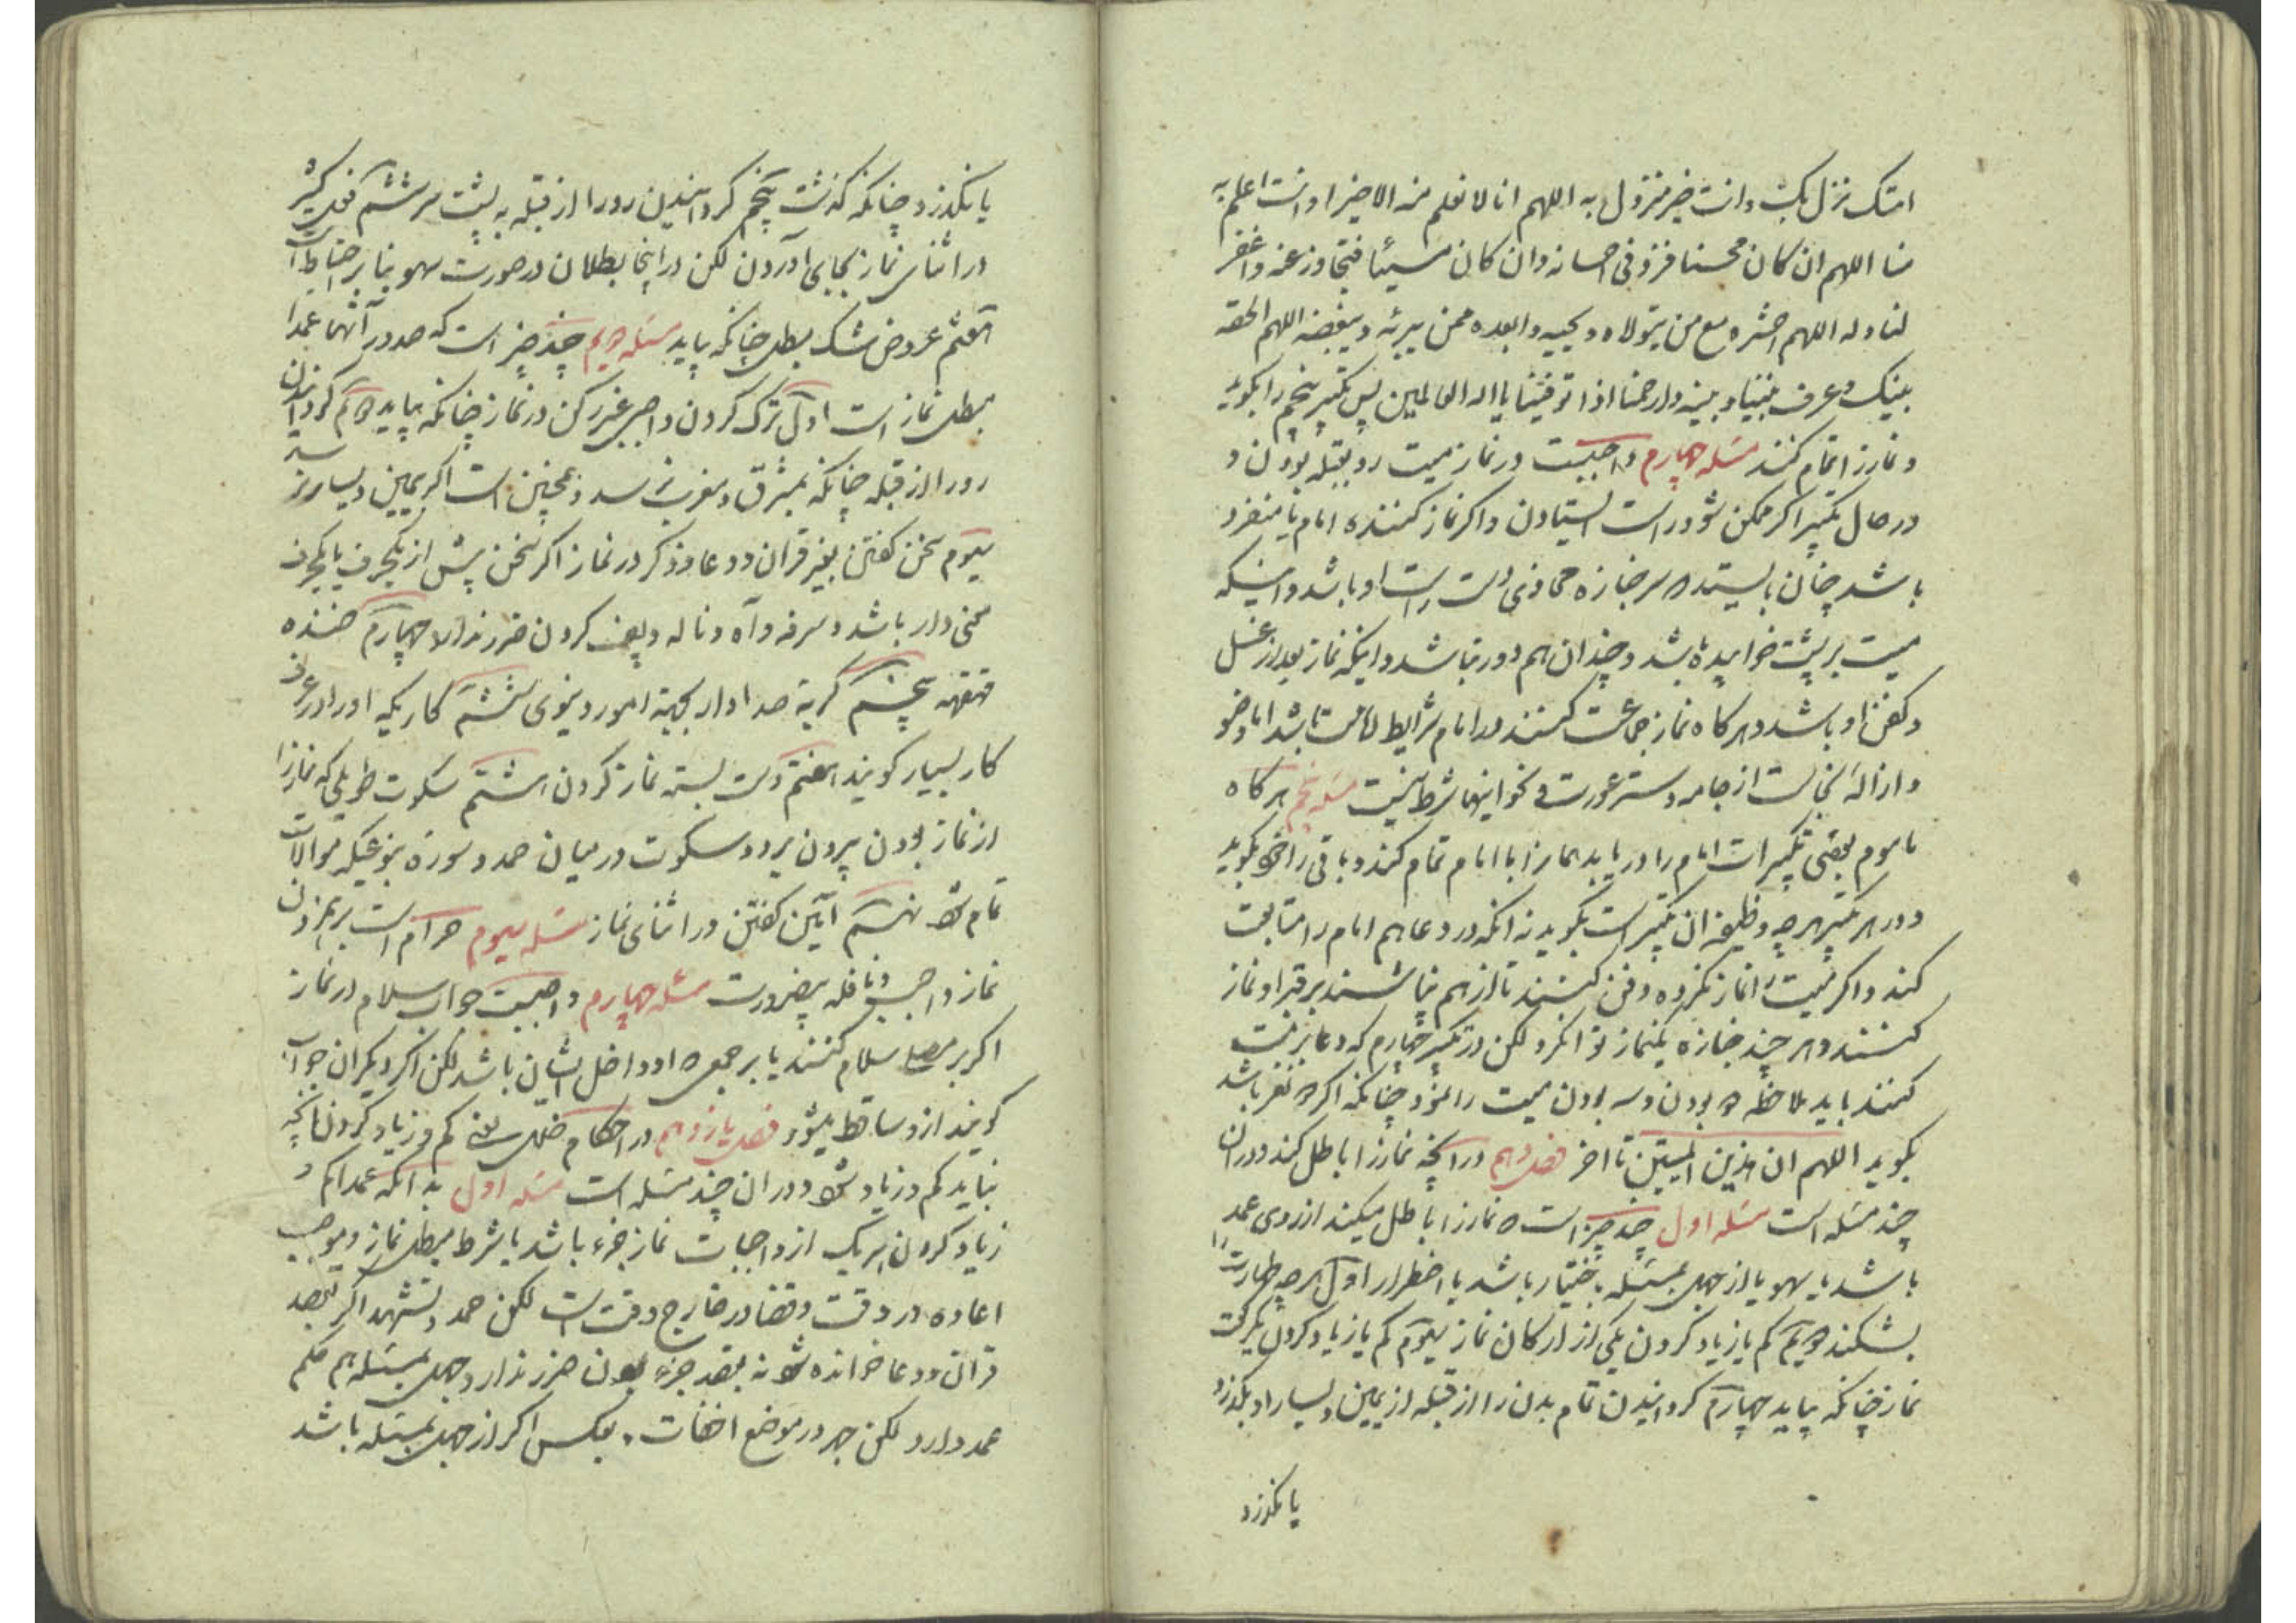 امتک نزل بک وانت خیر منزول به اللهم انا لا نعلم منه الا خیرا و انت اعلم به
منا اللهم ان کان محسنا فزد فی احسانه وان کان مسیئا فتجاوز عنه واغفر
لنا وله اللهم احشره مع من یتولاه ویحبه وابعده ممن یبرئه ویبغضه اللهم الحقه
بنبیک وعرف بیننا وبینه وارحمنا اذا توفیتنا یا اله العالمین پس تکبیر پنجم را بکوید
و نمازرا تمام کنند مسئله چهارم واجبست در نماز میت رو بقبله بودن و
در حال تکبیر اکر ممکن شود راست ایستادن واکر نماز کننده امام یا منفرد
باشد چنان بایستد که سر جنازه محاذی دست راست او باشد واینکه
میت بر پشت خوابیده باشد و چندان هم دور نباشد واینکه نماز بعد از غسل
و کفن او باشد و هرکاه نماز جماعت کنند در امام شرایط امامت باشد اما وضو
وازالهٔ نجاست از جامه وستر عورت و نحو اینها شرط نیست مسئله پنجم هرکاه
ماموم بعضی تکبیرات امام را دریابد همانرا با امام تمام کند وباقی را خود بکوید
و در هر تکبیر هرچه وظیفه ان تکبیر است بکوید نه انکه در دعا هم امام را متابعت
کند واکر میت را نماز نکرده دفن کنند تا از هم نپاشند بر قبر او نماز
کنند و هر چند جنازه یکنماز توانکرد لکن در تکبیر چهارم که دعا بر میت
کنند باید ملاحظه دو بودن وسه بودن میت را نمود چنانکه اکر دو نفر باشد
بکوید اللهم ان هذین المیتین تا اخر فصل دهم در انچه نمازرا باطل کند ودر ان
چند مسئله است مسئله اول چند چیز است که نمازرا باطل میکند از روی عمد
باشد یا سهو یا از جهل بمسئله باختیار باشد یا اضطرار اول هر چه طهارت را
بشکند دویم کم یا زیاد کردن یکی از ارکان نماز سیوم کم یا زیاد کردن یکرکعت
نماز چنانکه بیاید چهارم کردانیدن تمام بدن را از قبله از یمین ویسار او بکذرد
یا نکذرد
یا نکذرد چنانکه کذشت پنجم کردانیدن رو را از قبله به پشت سر ششم فعل کثیر
در اثنای نماز بجای آوردن لکن در اینجا بطلان در صورت سهو بنا بر احتیاط است
هفتم عروض شک مبطل چنانکه بیاید مسئله دویم چند چیز است که صدور آنها عمدا
مبطل نماز است اول ترک کردن واجبی غیر رکن در نماز چنانکه بیاید دویم کردانیدن
رو را از قبله چنانکه بمشرق ومغرب نرسد وهمچنین است اکر بیمین ویسار برسد
سیوم سخن کفتن بغیر قران ودعا وذکر در نماز اکر سخن پیش از یکحرف یا یکحرف
معنی دار باشد وسرفه وآه وناله وپف کردن ضرر ندارد چهارم خنده
قهقهه پنجم کریه صدا دار بجهة امور دنیوی ششم کاریکه اورا در عرف
کار بسیار کویند هفتم دست بسته نماز کردن هشتم سکوت طویلی که نمازرا
از نماز بودن بیرون برد وسکوت در میان حمد وسوره بنوعیکه موالات
تمام شود نهم آمین کفتن در اثنای نماز مسئله سیوم حرام است بریدن
نماز واجب ونافله بیضرورت مسئله چهارم واجبست جواب سلام در نماز
اکر بر مصلی سلام کنند یا بر جمعی که او داخل ایشان باشد لکن اکر دیکران جواب
کویند ازو ساقط میشود فصل یازدهم در احکام خلل یعنی کم و زیاد کردن انچه
نباید کم وزیاد شود ودر ان چند مسئله است مسئله اول بدانکه عمدا کم و
زیاد کردن هریک از واجبات نماز جزء باشد یا شرط مبطل نماز وموجب
اعاده در وقت وقضا در خارج وقت است لکن حمد وتشهد اکر بقصد
قران ودعا خوانده شود نه بقصد جزء بودن ضرر ندارد وجهل بمسئله هم حکم
عمد دارد لکن جهر در موضع اخفات وبعکس اکر از جهل بمسئله باشد